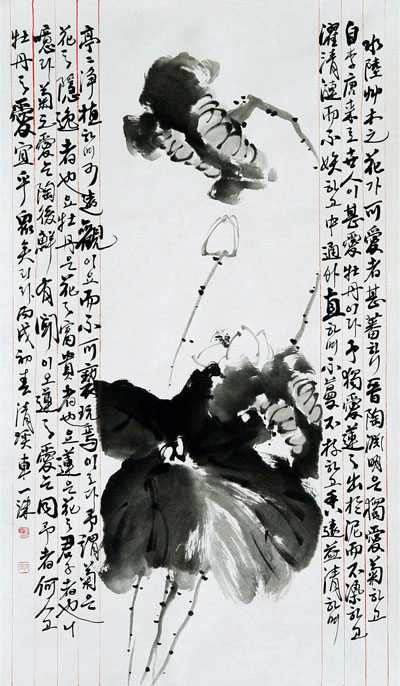 水陸艸木之花가可愛者甚蕃하니晉陶淵明은獨愛菊하고
自李唐來로世人이甚愛牡丹이라予獨愛蓮之出於泥而不染하고
濯清漣而不妖하고中通外直하며不蔓不枝하고香遠益清하며
亭〻淨植하며可遠觀이요而不可褻玩焉이로다予謂菊은
花之隱逸者也요牡丹은花之富貴者也요蓮은花之君子者也니
噫라菊之愛는陶後鮮有聞이요蓮之愛는同予者何人고
牡丹之愛宜乎衆矣리라丙戌初春清溪